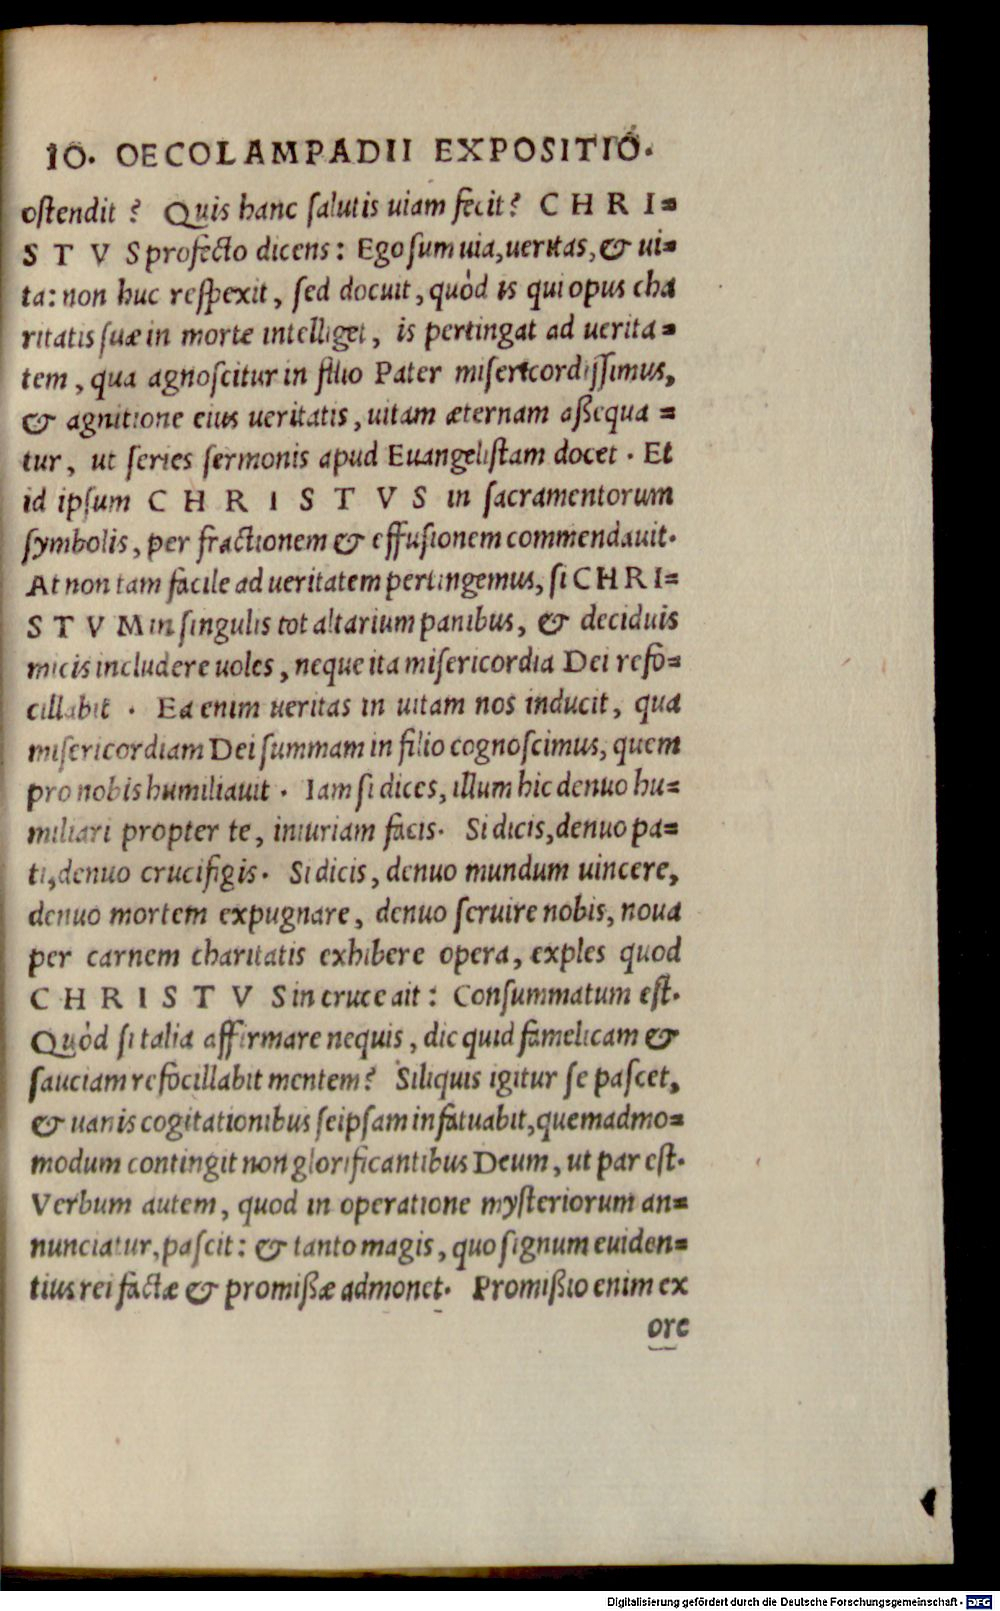 IO. OECOLAMPADII EXPOSITIO.
oſtendit? Quis hanc ſalutis uiam fecit? CHRI=
STVS profecto dicens: Ego ſum uia, ueritas, & ui=
ta: non huc reſpexit, ſed docuit, quòd is qui opus cha
ritatis ſuæ in morte intelliget, is pertingat ad uerita=
tem, qua agnoſcitur in filio Pater miſericordiſſimus,
& agnitione eius ueritatis, uitam æternam aßequa=
tur, ut ſeries ſermonis apud Euangeliſtam docet. Et
id ipſum CHRISTVS in ſacramentorum
ſymbolis, per fractionem & effuſionem commendauit.
At non tam facile ad ueritatem pertingemus, ſi CHRI=
STVM in ſingulis tot altarium panibus, & deciduis
micis includere uoles, neque ita miſericordia Dei refo=
cillabit. Ea enim ueritas in uitam nos inducit, qua
miſericordiam Dei ſummam in filio cognoſcimus, quem
pro nobis humiliauit. Iam ſi dices, illum hic denuo hu=
miliari propter te, iniuriam facis. Si dicis, denuo pa=
ti, denuo crucifigis. Si dicis, denuo mundum uincere,
denuo mortem expugnare, denuo ſeruire nobis, noua
per carnem charitatis exhibere opera, exples quod
CHRISTVS in cruce ait: Conſummatum eſt.
Quòd ſi talia affirmare nequis, dic quid famelicam &
ſauciam refocillabit mentem? Siliquis igitur ſe paſcet,
& uanis cogitationibus ſeipſam infatuabit, quemadmo=
modum contingit non glorificantibus Deum, ut par eſt.
Verbum autem, quod in operatione myſteriorum an=
nunciatur, paſcit: & tanto magis, quo ſignum euiden=
tius rei factæ & promißæ admonet. Promißio enim ex
ore
Digitalisierung gefördert durch die Deutsche Forschungsgemeinschaft - DFG